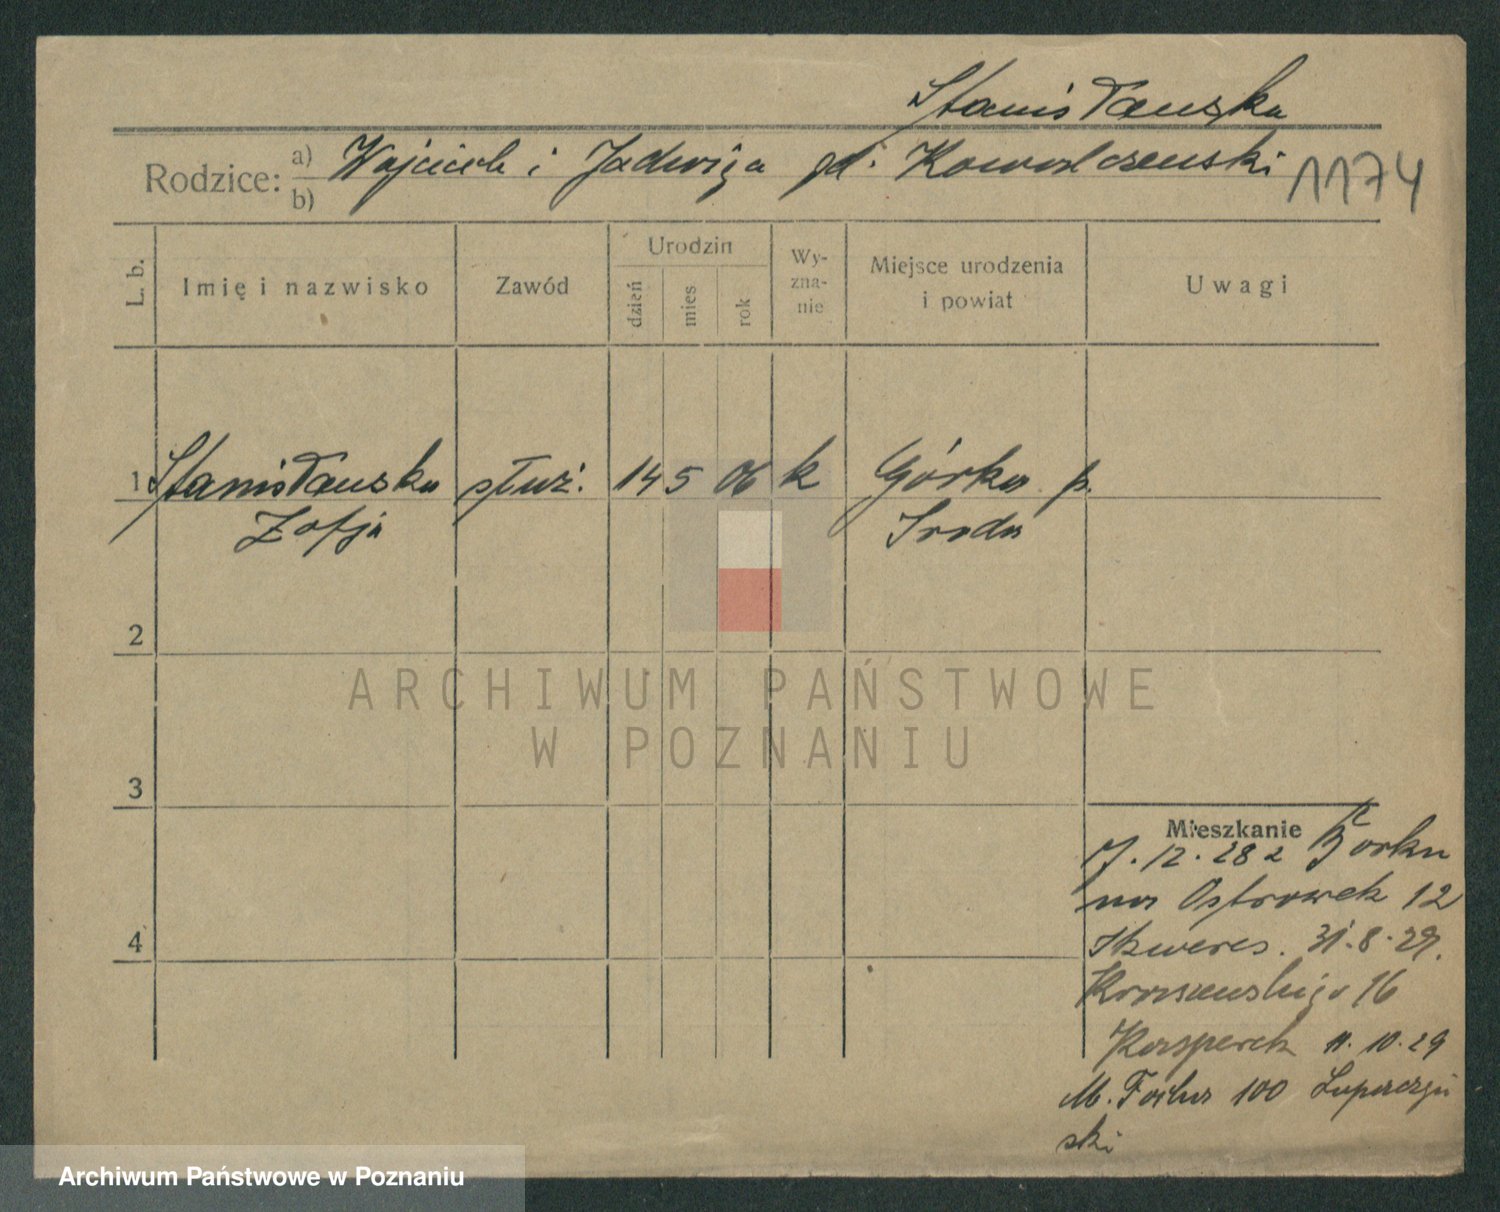 Stanisławska
Rodzice: a) Wojciech i Jadwiga zd. Kowalczewski 1174
b)
L. b.
Imię i nazwisko
Zawód
Urodzin
dzień
mies
rok
Wy-
zna-
nie
Miejsce urodzenia
i powiat
Uwagi
1 Stanisławska służ. 14 5 06 k Górka p.
Zofja Środa
2
ARCHIWUM PAŃSTWOWE
W POZNANIU
3
Mieszkanie
7.12.28 z Górka
na Ostrówek 12
31.8.29.
Kraszewskiego 16
Kasperek 11.10.29
4
M. Focha 100
ski
Archiwum Państwowe w Poznaniu